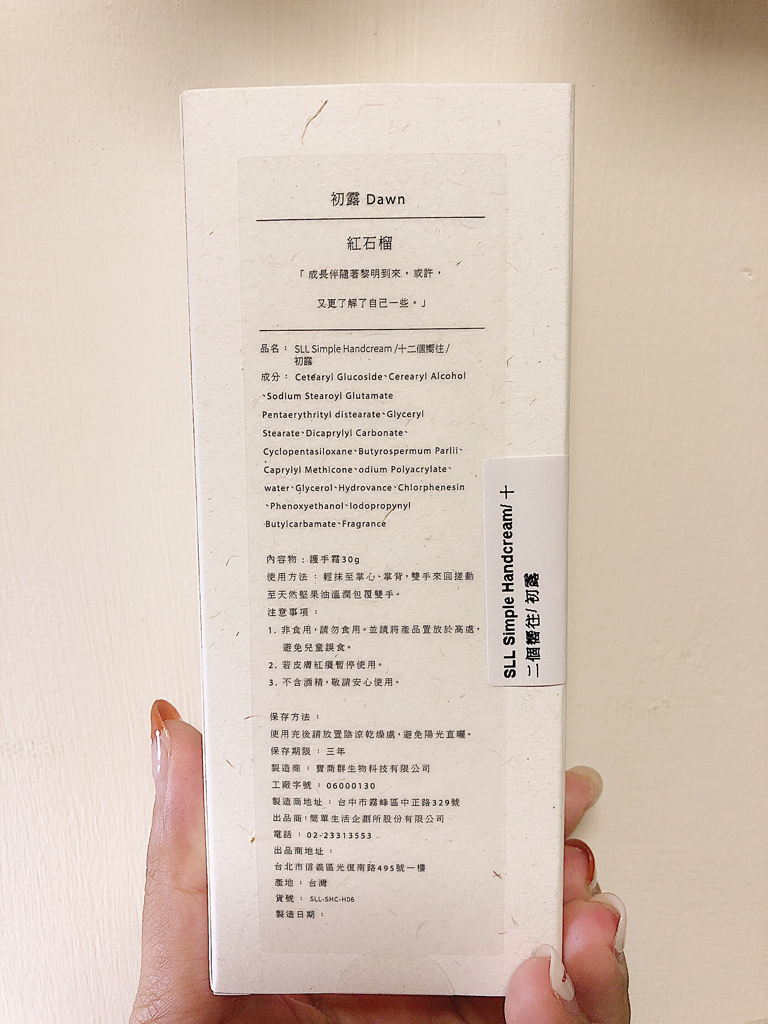 初露 Dawn
紅石榴
「成長伴隨著黎明到來，或許，
又更了解了自己一些。」
品名： SLL Simple Handcream /十二個嚮往/
初露
成分： Cetearyl Glucoside、Cerearyl Alcohol
、Sodium Stearoyl Glutamate
Pentaerythrityl distearate、Glyceryl
Stearate、Dicaprylyl Carbonate、
Cyclopentasiloxane、Butyrospermum Parlii、
Caprylyl Methicone、odium Polyacrylate、
water、Glycerol、Hydrovance、Chlorphenesin
、Phenoxyethanol、Iodopropynyl
Butylcarbamate、Fragrance
內容物：護手霜30g
使用方法：輕抹至掌心、掌背，雙手來回搓動
至天然堅果油溫潤包覆雙手。
注意事項：
1. 非食用，請勿食用。並請將產品置放於高處，
避免兒童誤食。
2. 若皮膚紅癢暫停使用。
3. 不含酒精，敬請安心使用。
保存方法：
使用完後請放置陰涼乾燥處，避免陽光直曬。
保存期限：三年
製造商：寶喬群生物科技有限公司
工廠字號：06000130
製造商地址：台中市霧峰區中正路329號
出品商：簡單生活企劃所股份有限公司
電話：02-23313553
出品商地址：
台北市信義區光復南路495號一樓
產地：台灣
貨號：SLL-SHC-H06
製造日期：
SLL Simple Handcream/ 十
二個嚮往/ 初露